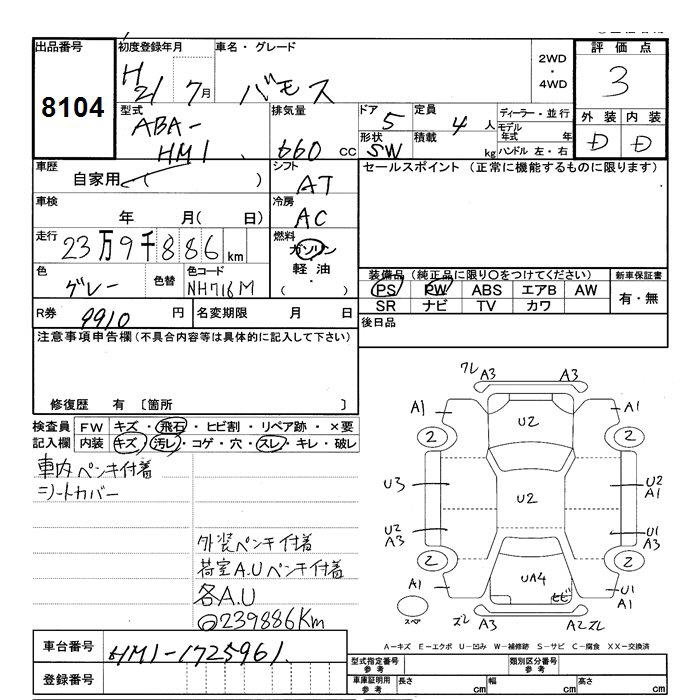 出品番号 初度登録年月 車名・グレード 2WD・4WD 評価点
8104 H21 7月 バモス 3
型式 排気量 ドア 定員 ディーラー・並行 外装 内装
ABA-HM1 660cc 5 4人 モデル年式 年 D D
形状 積載 ハンドル 左・右
SW kg
車歴 シフト セールスポイント (正常に機能するものに限ります)
自家用 ( ) AT
車検 冷房
年 月( 日) AC
走行 燃料
23万9千886km ガソリン
軽油
( )
色 色替 色コード 装備品(純正品に限り○をつけてください) 新車保証書
グレー NH716M PS PW ABS エアB AW 有・無
SR ナビ TV カワ
R券 9910円 名変期限 月 日 後日品
注意事項申告欄(不具合内容等は具体的に記入して下さい)
修復歴 有 〔箇所 〕
検査員 FW キズ・飛石・ヒビ割・リペア跡・×要
記入欄 内装 キズ・汚レ・コゲ・穴・スレ・キレ・破レ
車内ペンキ付着
シートカバー
外装ペンキ付着
荷室A.Uペンキ付着
各A.U
239886Km
ワレ A3 A3
A1 A1
2 U2 2
U3 U2 U2 A1
U2 A3 U1 A3
2 2
A1 UA4 ヒビ U1 A1
スペ ズレ A3 A2 ズレ
A-キズ E-エクボ U-凹み W-補修跡 S-サビ C-腐食 XX-交換済
車台番号 HM1-1725961
登録番号
型式指定番号 参考 類別区分番号 参考
車庫証明用 参考 長さ cm 幅 cm 高さ cm